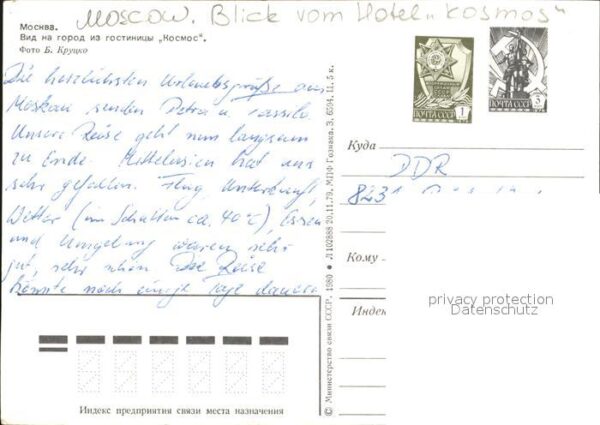 MOSCOW. Blick vom Hotel „Kosmos“
Москва.
Вид на город из гостиницы „Космос".
Фото Б. Круцко
Die herzlichsten Urlaubsgrüße aus
Moskau senden Petra u. Tassilo.
Unsere Reise geht nun langsam
zu Ende. Mittelasien hat uns
sehr gefallen. Flug, Unterkunft,
Wetter (im Schatten ca. 40°C), Essen
und Umgebung waren sehr
gut, sehr schön. Die Reise
könnte noch einige Tage dauern
ПОЧТА СССР 1
ПОЧТА СССР 3
Куда
DDR
8231
Кому
Индекс
privacy protection
Datenschutz
© Министерство связи СССР, 1980 ● Л 102888 20.11.79. МПФ Гознака. З. 6504. Ц. 5 к.
Индекс предприятия связи места назначения